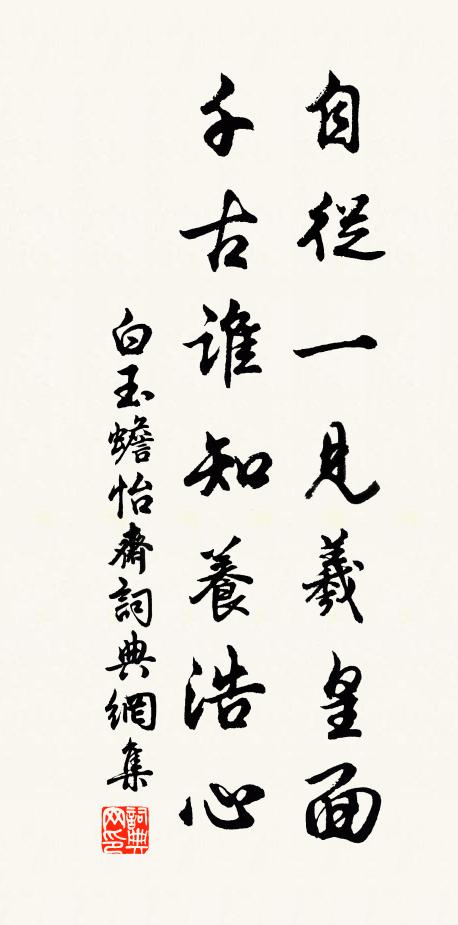 自從一見羲皇面
千古誰知養浩心
白玉蟾怡齋詞典網集
詞典网印